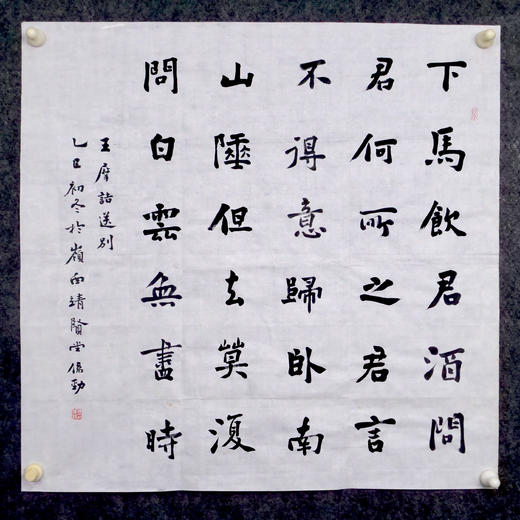 下馬飲君酒問
君何所之君言
不得意歸卧南
山陲但去莫復
問白雲無盡時
王摩詰送別
乙巳初冬於嶺西靖賢堂勁